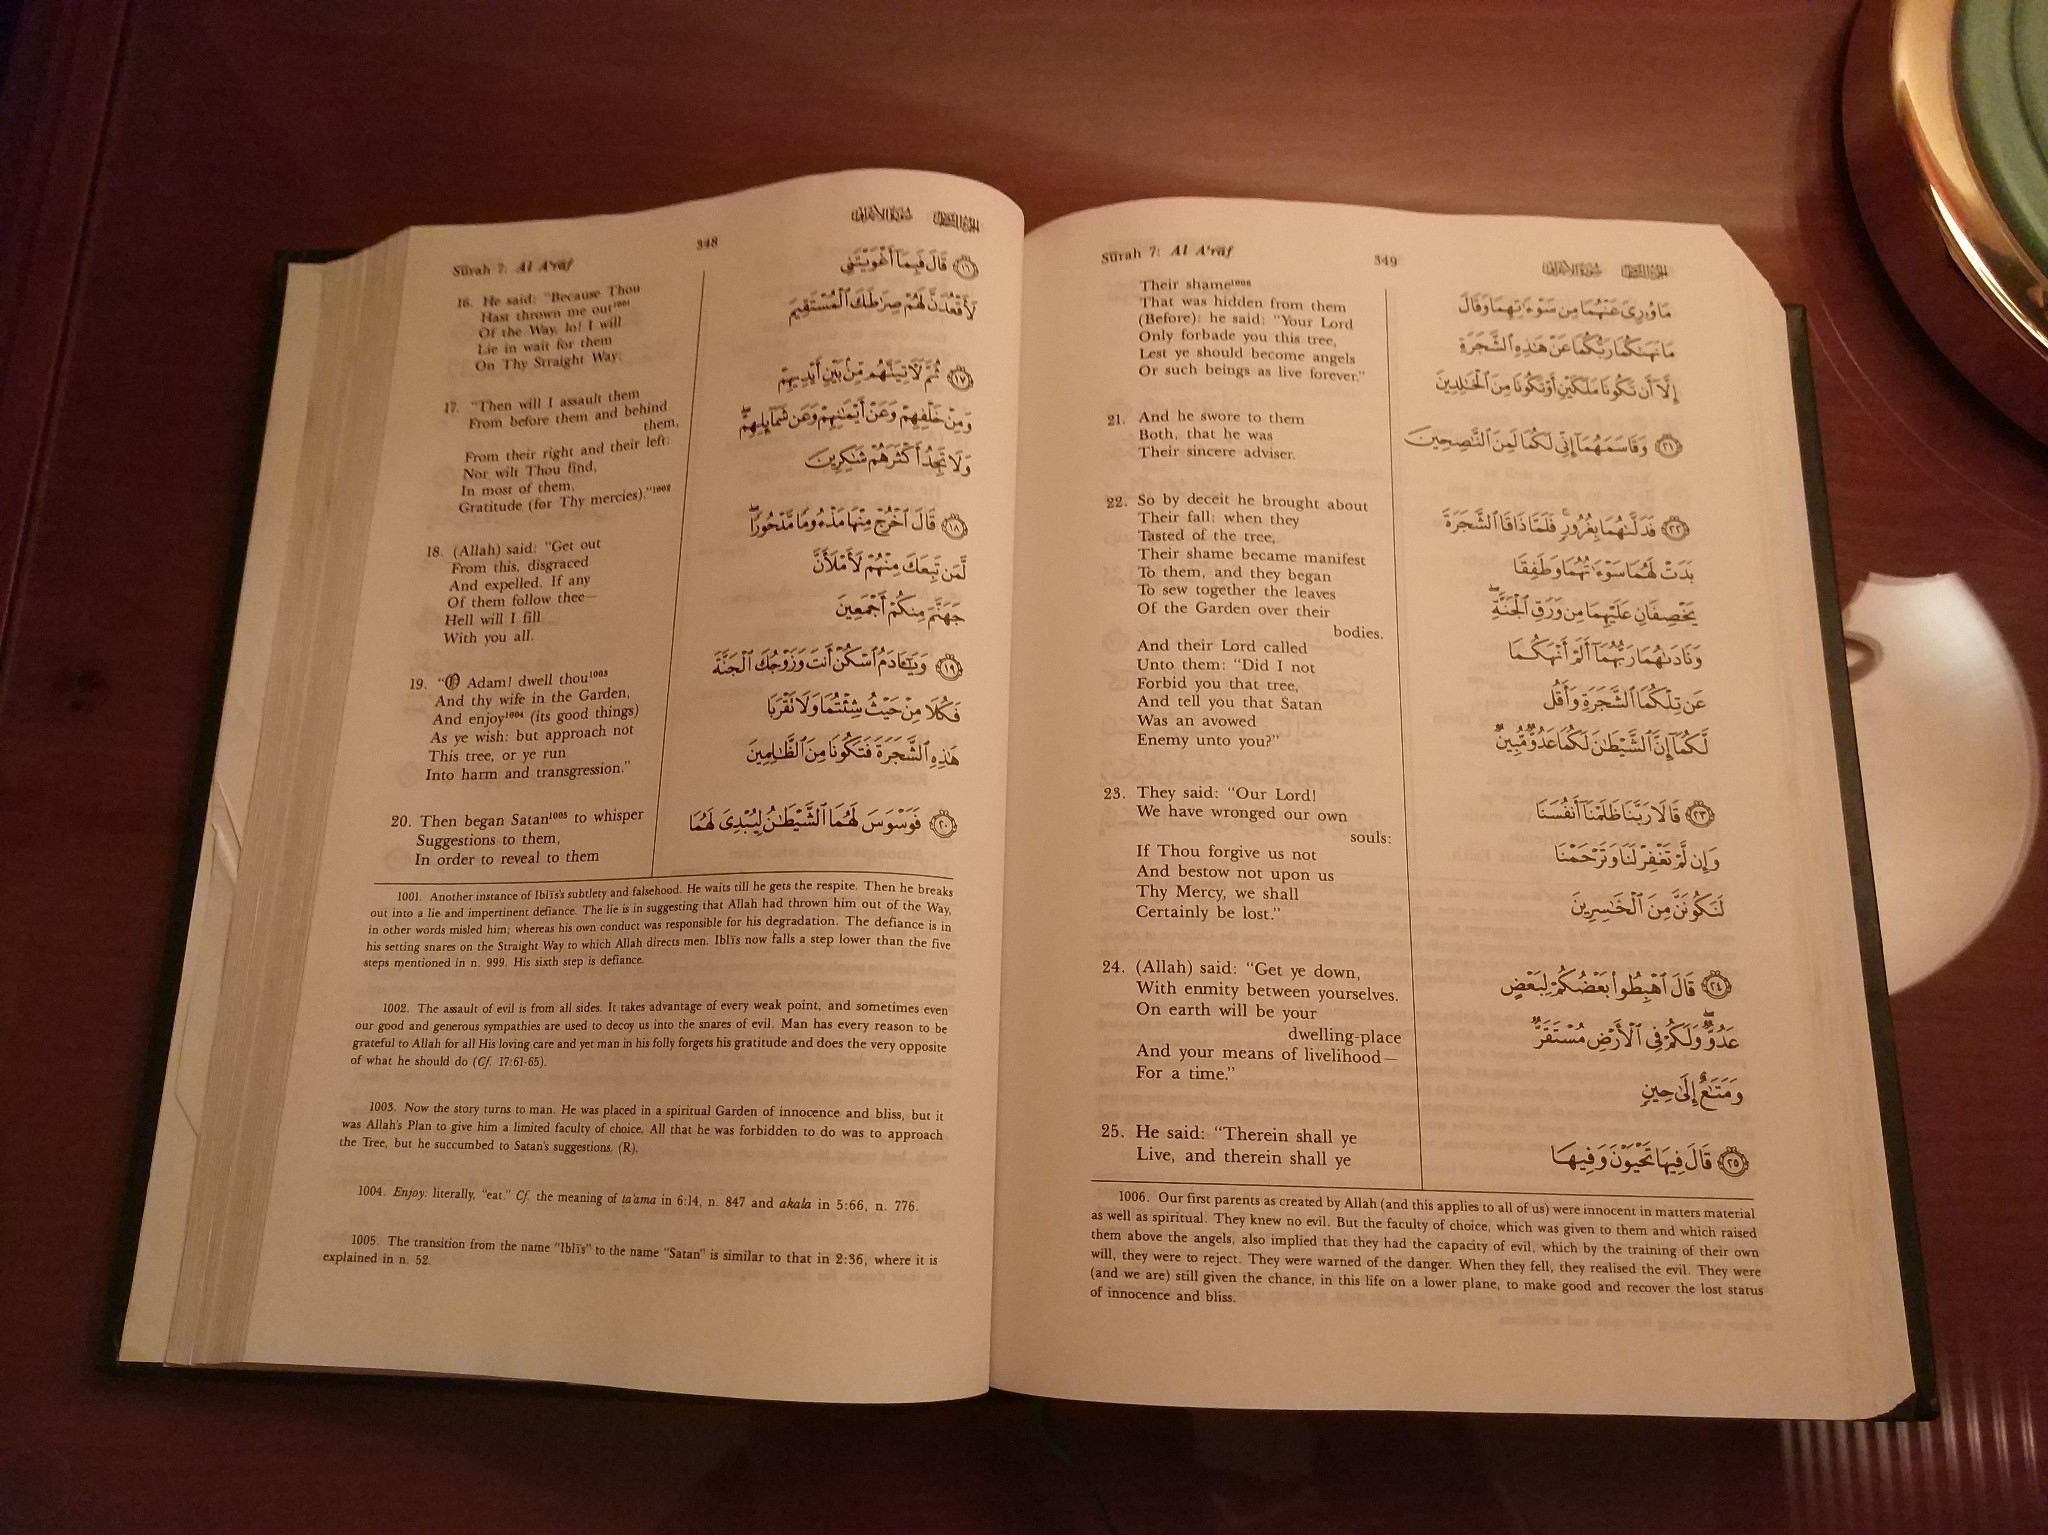 Surah 7: Al A'rāf
348
الجزء الثامن سورة الأعراف
16. He said: "Because Thou
Hast thrown me out¹⁰⁰¹
Of the Way, lo! I will
Lie in wait for them
On Thy Straight Way:
17. "Then will I assault them
From before them and behind
them,
From their right and their left:
Nor wilt Thou find,
In most of them,
Gratitude (for Thy mercies)."¹⁰⁰²
18. (Allah) said: "Get out
From this, disgraced
And expelled. If any
Of them follow thee—
Hell will I fill
With you all.
19. "O Adam! dwell thou¹⁰⁰³
And thy wife in the Garden,
And enjoy¹⁰⁰⁴ (its good things)
As ye wish: but approach not
This tree, or ye run
Into harm and transgression."
20. Then began Satan¹⁰⁰⁵ to whisper
Suggestions to them,
In order to reveal to them
١٦ قَالَ فَبِمَآ أَغْوَيْتَنِى
لَأَقْعُدَنَّ لَهُمْ صِرَٰطَكَ ٱلْمُسْتَقِيمَ
١٧ ثُمَّ لَأٓتِيَنَّهُم مِّنۢ بَيْنِ أَيْدِيهِمْ
وَمِنْ خَلْفِهِمْ وَعَنْ أَيْمَٰنِهِمْ وَعَن شَمَآئِلِهِمْ ۖ
وَلَا تَجِدُ أَكْثَرَهُمْ شَٰكِرِينَ
١٨ قَالَ ٱخْرُجْ مِنْهَا مَذْءُومًا مَّدْحُورًا ۖ
لَّمَن تَبِعَكَ مِنْهُمْ لَأَمْلَأَنَّ
جَهَنَّمَ مِنكُمْ أَجْمَعِينَ
١٩ وَيَٰٓـَٔادَمُ ٱسْكُنْ أَنتَ وَزَوْجُكَ ٱلْجَنَّةَ
فَكُلَا مِنْ حَيْثُ شِئْتُمَا وَلَا تَقْرَبَا
هَٰذِهِ ٱلشَّجَرَةَ فَتَكُونَا مِنَ ٱلظَّٰلِمِينَ
٢٠ فَوَسْوَسَ لَهُمَا ٱلشَّيْطَٰنُ لِيُبْدِىَ لَهُمَا
1001. Another instance of Iblīs's subtlety and falsehood. He waits till he gets the respite. Then he breaks
out into a lie and impertinent defiance. The lie is in suggesting that Allah had thrown him out of the Way,
in other words misled him; whereas his own conduct was responsible for his degradation. The defiance is in
his setting snares on the Straight Way to which Allah directs men. Iblīs now falls a step lower than the five
steps mentioned in n. 999. His sixth step is defiance.
1002. The assault of evil is from all sides. It takes advantage of every weak point, and sometimes even
our good and generous sympathies are used to decoy us into the snares of evil. Man has every reason to be
grateful to Allah for all His loving care and yet man in his folly forgets his gratitude and does the very opposite
of what he should do (Cf. 17:61-65).
1003. Now the story turns to man. He was placed in a spiritual Garden of innocence and bliss, but it
was Allah's Plan to give him a limited faculty of choice. All that he was forbidden to do was to approach
the Tree, but he succumbed to Satan's suggestions. (R).
1004. Enjoy: literally, "eat." Cf. the meaning of ta'ama in 6:14, n. 847 and akala in 5:66, n. 776.
1005. The transition from the name "Iblīs" to the name "Satan" is similar to that in 2:36, where it is
explained in n. 52.
Surah 7: Al A'rāf
349
الجزء الثامن سورة الأعراف
Their shame¹⁰⁰⁶
That was hidden from them
(Before): he said: "Your Lord
Only forbade you this tree,
Lest ye should become angels
Or such beings as live forever."
21. And he swore to them
Both, that he was
Their sincere adviser.
22. So by deceit he brought about
Their fall: when they
Tasted of the tree,
Their shame became manifest
To them, and they began
To sew together the leaves
Of the Garden over their
bodies.
And their Lord called
Unto them: "Did I not
Forbid you that tree,
And tell you that Satan
Was an avowed
Enemy unto you?"
23. They said: "Our Lord!
We have wronged our own
souls:
If Thou forgive us not
And bestow not upon us
Thy Mercy, we shall
Certainly be lost."
24. (Allah) said: "Get ye down,
With enmity between yourselves.
On earth will be your
dwelling-place
And your means of livelihood—
For a time."
25. He said: "Therein shall ye
Live, and therein shall ye
مَا وُۥرِىَ عَنْهُمَا مِن سَوْءَٰتِهِمَا وَقَالَ
مَا نَهَىٰكُمَا رَبُّكُمَا عَنْ هَٰذِهِ ٱلشَّجَرَةِ
إِلَّآ أَن تَكُونَا مَلَكَيْنِ أَوْ تَكُونَا مِنَ ٱلْخَٰلِدِينَ
٢١ وَقَاسَمَهُمَآ إِنِّى لَكُمَا لَمِنَ ٱلنَّٰصِحِينَ
٢٢ فَدَلَّىٰهُمَا بِغُرُورٍ ۚ فَلَمَّا ذَاقَا ٱلشَّجَرَةَ
بَدَتْ لَهُمَا سَوْءَٰتُهُمَا وَطَفِقَا
يَخْصِفَانِ عَلَيْهِمَا مِن وَرَقِ ٱلْجَنَّةِ ۖ
وَنَادَىٰهُمَا رَبُّهُمَآ أَلَمْ أَنْهَكُمَا
عَن تِلْكُمَا ٱلشَّجَرَةِ وَأَقُل
لَّكُمَآ إِنَّ ٱلشَّيْطَٰنَ لَكُمَا عَدُوٌّ مُّبِينٌ
٢٣ قَالَا رَبَّنَا ظَلَمْنَآ أَنفُسَنَا
وَإِن لَّمْ تَغْفِرْ لَنَا وَتَرْحَمْنَا
لَنَكُونَنَّ مِنَ ٱلْخَٰسِرِينَ
٢٤ قَالَ ٱهْبِطُوا۟ بَعْضُكُمْ لِبَعْضٍ
عَدُوٌّ ۖ وَلَكُمْ فِى ٱلْأَرْضِ مُسْتَقَرٌّ
وَمَتَٰعٌ إِلَىٰ حِينٍ
٢٥ قَالَ فِيهَا تَحْيَوْنَ وَفِيهَا
1006. Our first parents as created by Allah (and this applies to all of us) were innocent in matters material
as well as spiritual. They knew no evil. But the faculty of choice, which was given to them and which raised
them above the angels, also implied that they had the capacity of evil, which by the training of their own
will, they were to reject. They were warned of the danger. When they fell, they realised the evil. They were
(and we are) still given the chance, in this life on a lower plane, to make good and recover the lost status
of innocence and bliss.